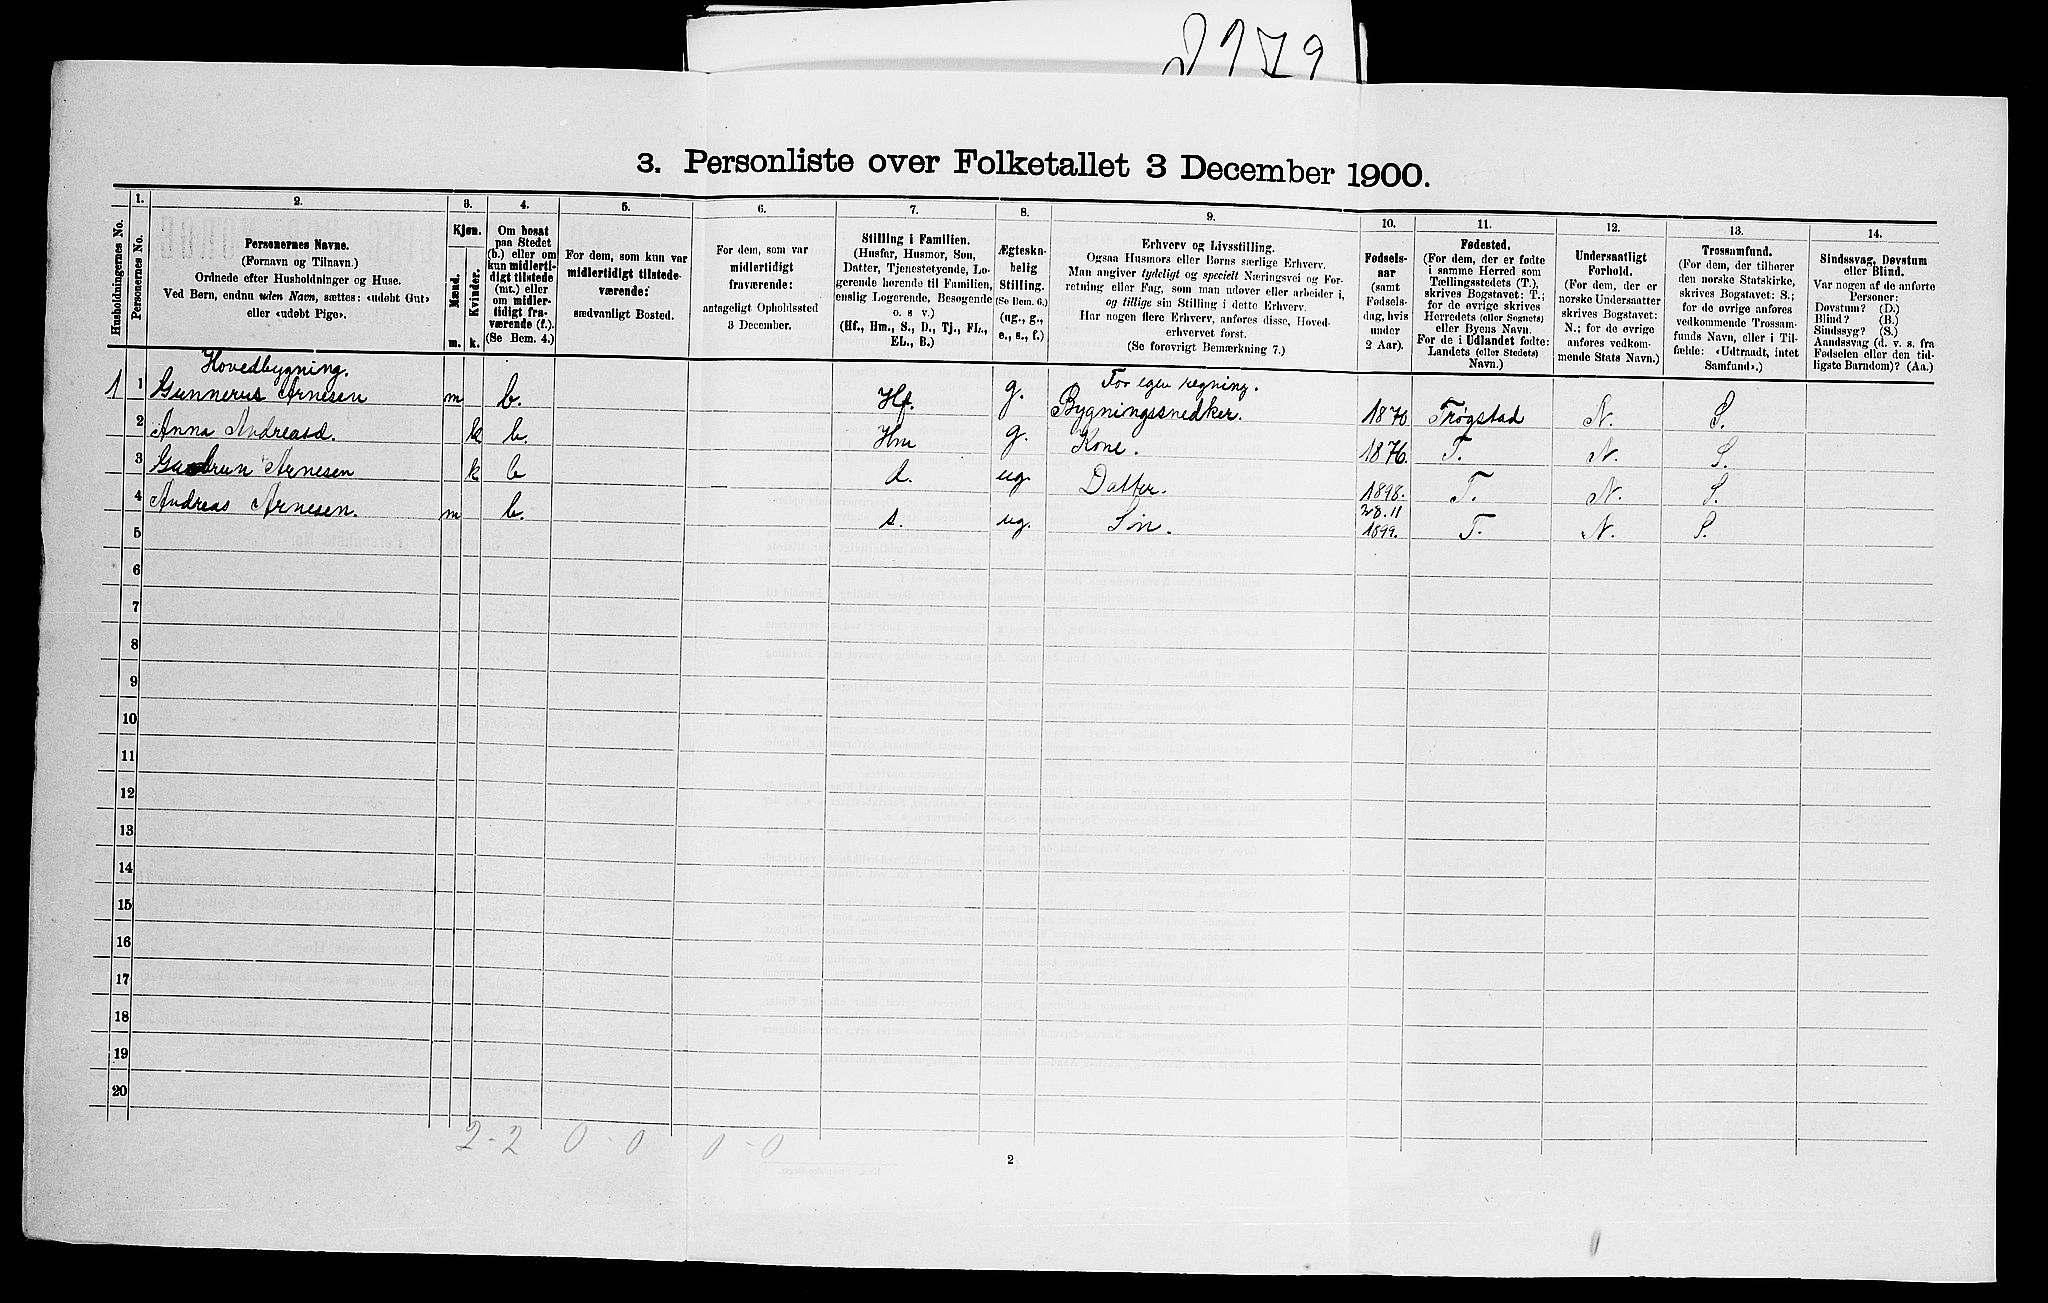 2979
3. Personliste over Folketallet 3 December 1900.
Husholdningernes No.
1.
Personernes No.
2.
Personernes Navne.
(Fornavn og Tilnavn.)
Ordnede efter Husholdninger og Huse.
Ved Børn, endnu uden Navn, sættes: «udøbt Gut»
eller «udøbt Pige».
3.
Kjøn.
Mænd.
Kvinder.
m. k.
4.
Om bosat
paa Stedet
(b.) eller om
kun midlerti-
digt tilstede
(mt.) eller
om midler-
tidigt fra-
værende (f.).
(Se Bem. 4.)
5.
For dem, som kun var
midlertidigt tilstede-
værende:
sædvanligt Bosted.
6.
For dem, som var
midlertidigt
fraværende:
antageligt Opholdssted
3 December.
7.
Stilling i Familien.
(Husfar, Husmor, Søn,
Datter, Tjenestetyende, Lo-
gerende hørende til Familien,
enslig Logerende, Besøgende
o. s v.)
(Hf., Hm., S., D., Tj., FL.,
EL., B.)
8.
Ægteska-
belig
Stilling.
(Se Bem. 6.)
(ug., g.,
e., s., f.)
9.
Erhverv og Livsstilling.
Ogsaa Husmors eller Børns særlige Erhverv.
Man angiver tydeligt og specielt Næringsvei og For-
retning eller Fag, som man udøver eller arbeider i,
og tillige sin Stilling i dette Erhverv.
Har nogen flere Erhverv, anføres disse, Hoved-
erhvervet først.
(Se forøvrigt Bemærkning 7.)
10.
Fødsels-
aar
(samt
Fødsels-
dag, hvis
under
2 Aar).
11.
Fødested.
(For dem, der er fødte
i samme Herred som
Tællingsstedets (T.),
skrives Bogstavet: T.;
for de øvrige skrives
Herredets (eller Sognets)
eller Byens Navn.
For de i Udlandet fødte:
Landets (eller Stedets)
Navn.)
12.
Undersaatligt
Forhold.
(For dem, der er
norske Undersaatter
skrives Bogstavet:
N.; for de øvrige
anføres vedkom-
mende Stats Navn.)
13.
Trossamfund.
(For dem, der tilhører
den norske Statskirke,
skrives Bogstavet: S.;
for de øvrige anføres
vedkommende Trossam-
funds Navn, eller i Til-
fælde: «Udtraadt, intet
Samfund».)
14.
Sindssvag, Døvstum
eller Blind.
Var nogen af de anførte
Personer:
Døvstum? (D.)
Blind? (B.)
Sindssyg? (S.)
Aandssvag (d. v. s. fra
Fødselen eller den tid-
ligste Barndom)? (Aa.)
Hovedbygning.
For egen regning.
1 1 Gunnerus Arnesen m b. Hf. g. Bygningssnedker. 1870 Trøgstad N. S.
2 Anna Andreasd. k b. Hm g. Kone. 1876. T. N. S.
3 Gudbrun Arnesen k b d. ug. Datter. 1898. T. N. S.
4 Andreas Arnesen. m b. s. ug. Sin. 28.11 1899. T. N. S.
5
6
7
8
9
10
11
12
13
14
15
16
17
18
19
20
2-2 0-0 0-0
2